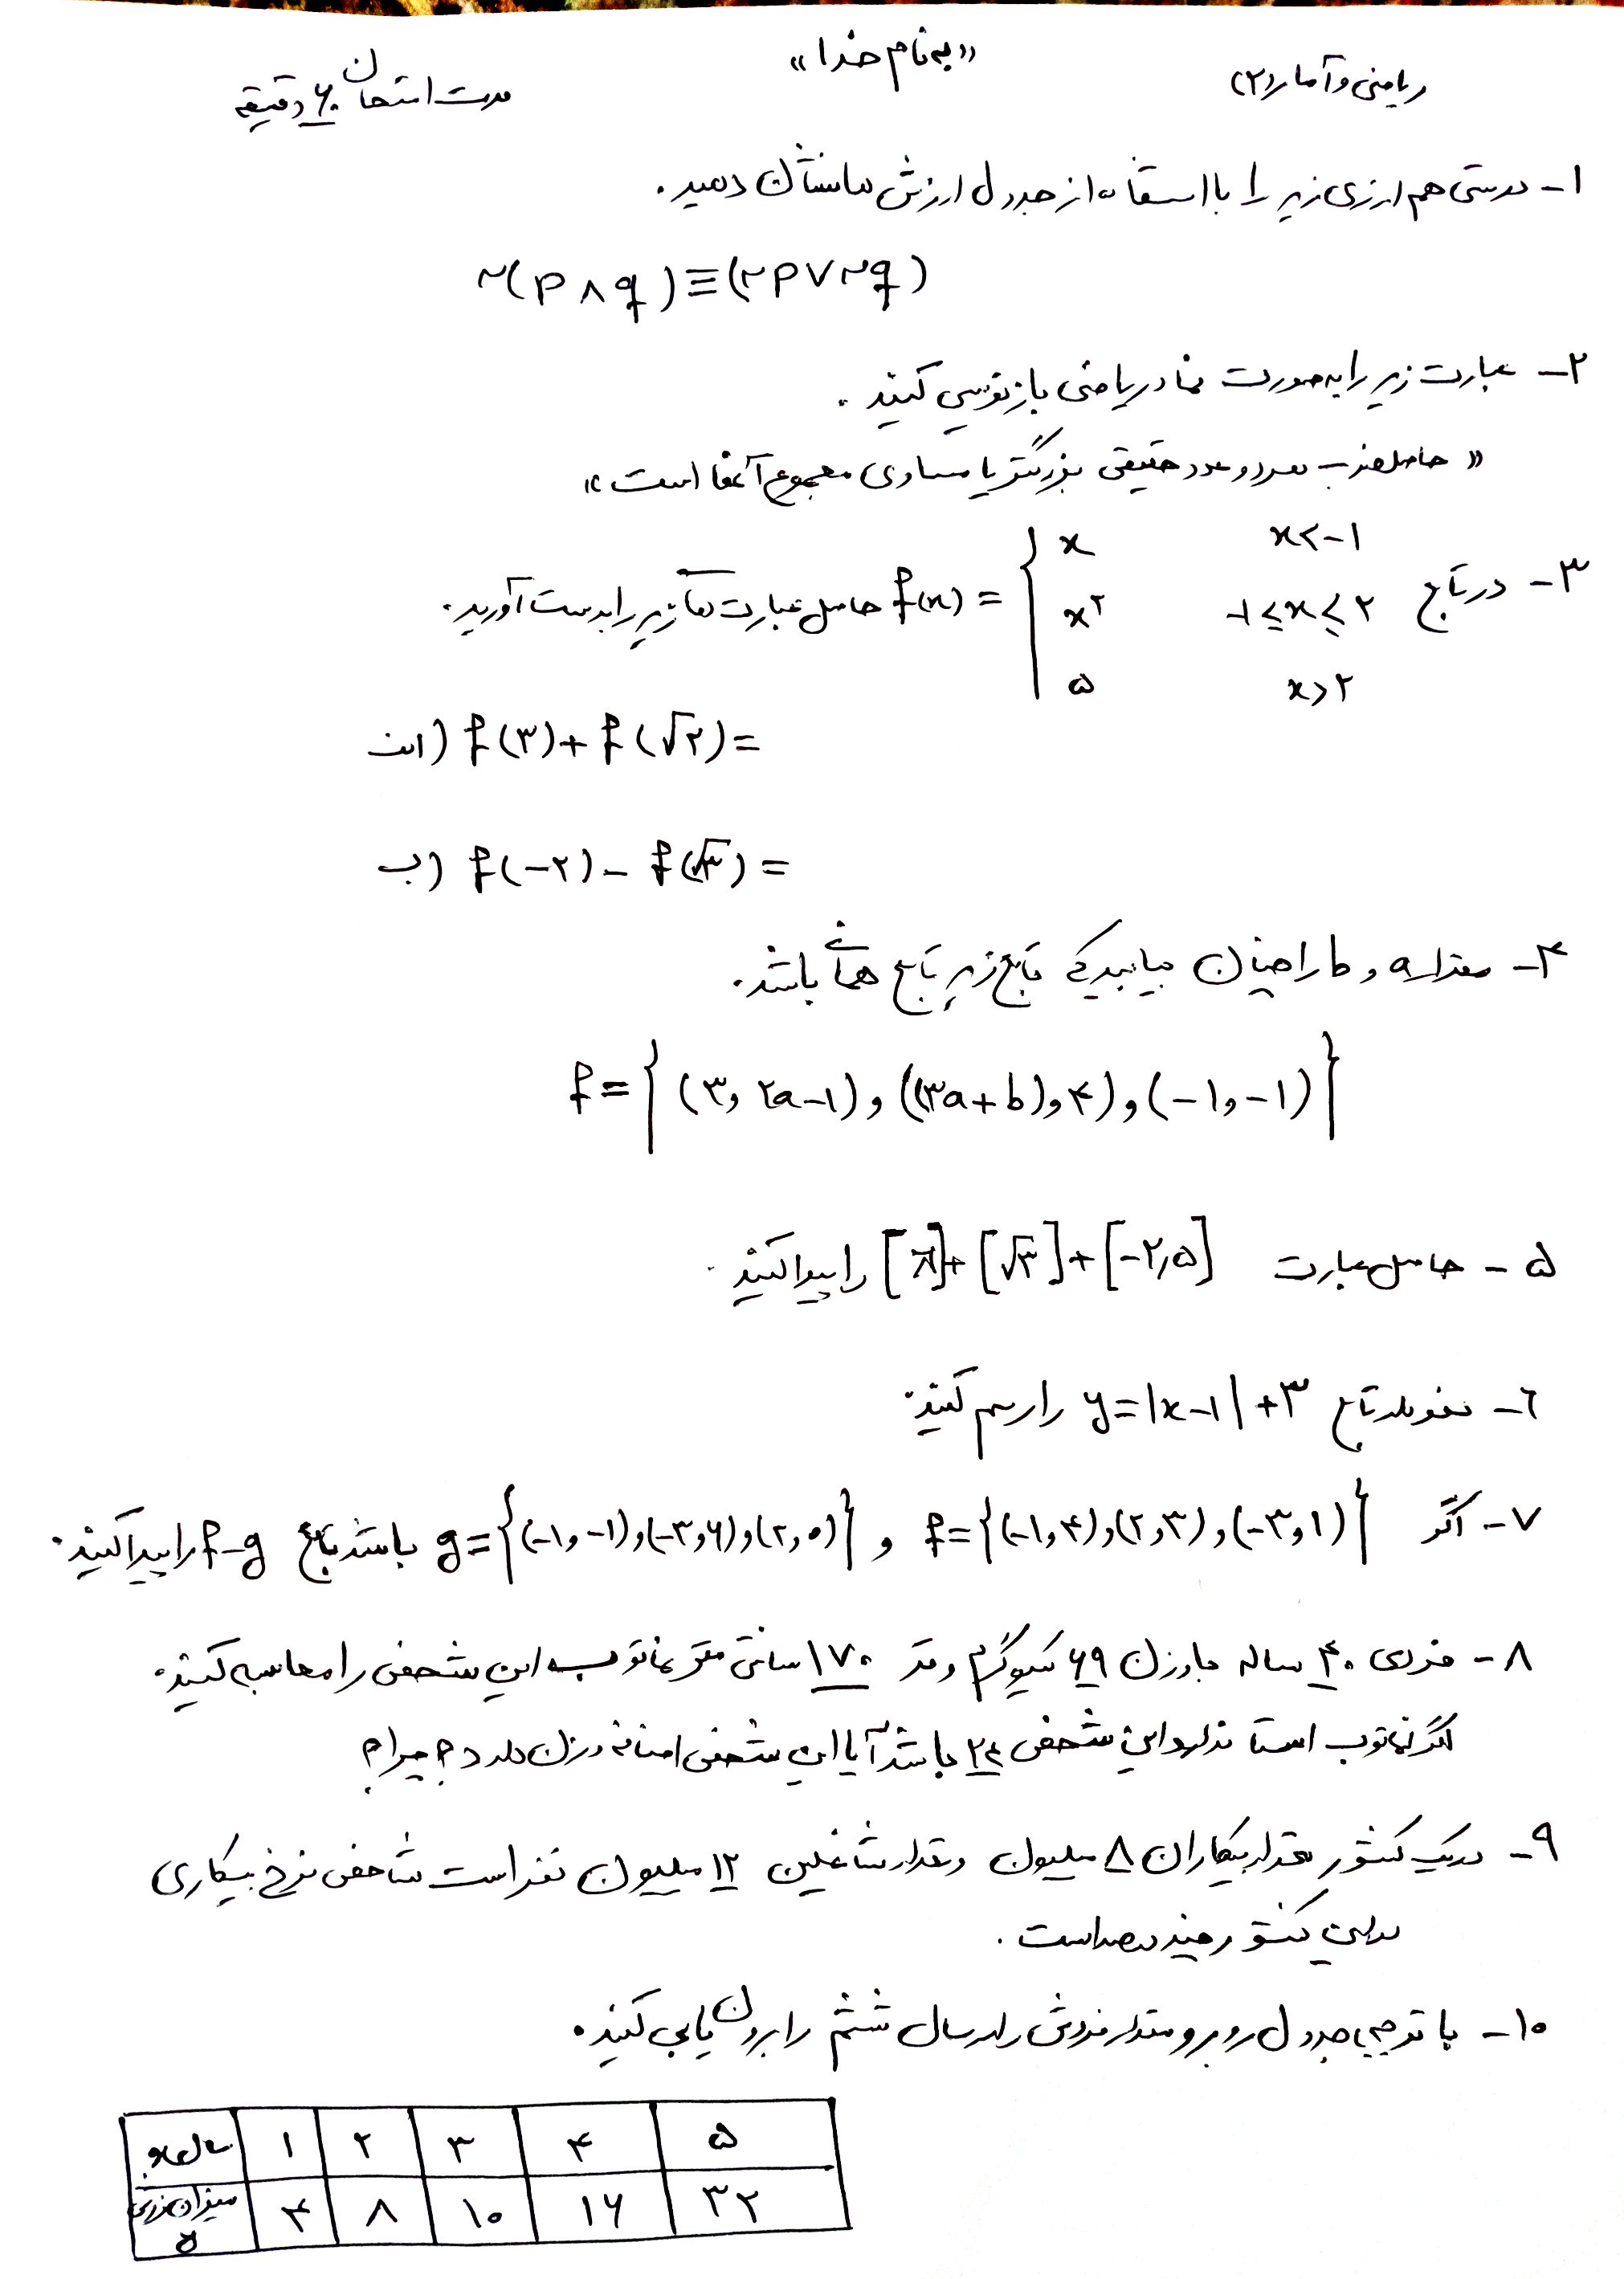 «به نام خدا»
ریاضی و آمار (۲)
مدت امتحان ۶۰ دقیقه
۱- درستی هم ارزی زیر را با استفاده از جدول ارزش ها نشان دهید.
~(p ∧ q) ≡ (~p ∨ ~q)
۲- عبارت زیر را به صورت نماد ریاضی بازنویسی کنید.
«حاصلضرب هر دو عدد حقیقی بزرگتر یا مساوی مجموع آنها است»
۳- در تابع f(x) = { x    x<-۱
x^۲    -۱≤x≤۲
۵    x>۲
حاصل عبارت های زیر را بدست آورید.
الف) f(۳)+f(√۲)=
ب) f(-۲)-f(√۳)=
۴- مقدار a و b را چنان بیابید که تابع زیر تابع همانی باشد.
f={(۳,۲a-۱),((۳a+b),۴),(-۱,-۱)}
۵- حاصل عبارت [π]+[√۳]+[-۲٫۵] را پیدا کنید.
۶- نمودار تابع y=|x-۱|+۳ را رسم کنید.
۷- اگر f={(-۱,۴),(۲,۳),(-۳,۱)} و g={(-۱,-۱),(-۳,۶),(۲,۰)} باشد تابع f-g را پیدا کنید.
۸- فردی ۴۰ ساله با وزن ۶۹ کیلوگرم و قد ۱۷۰ سانتی متر نماتوب این شخص را محاسبه کنید.
اگر نماتوب استاندارد این شخص ۲۴ باشد آیا این شخص اضافه وزن دارد؟ چرا؟
۹- در یک کشور مقدار بیکاران ۸ میلیون و مقدار شاغلین ۱۲ میلیون نفر است شاخص نرخ بیکاری
در این کشور چند درصد است.
۱۰- با توجه به جدول روبرو مقدار فروش را در سال ششم را برون یابی کنید.
سال x ۱ ۲ ۳ ۴ ۵
میزان فروش ۴ ۸ ۱۰ ۱۶ ۳۲